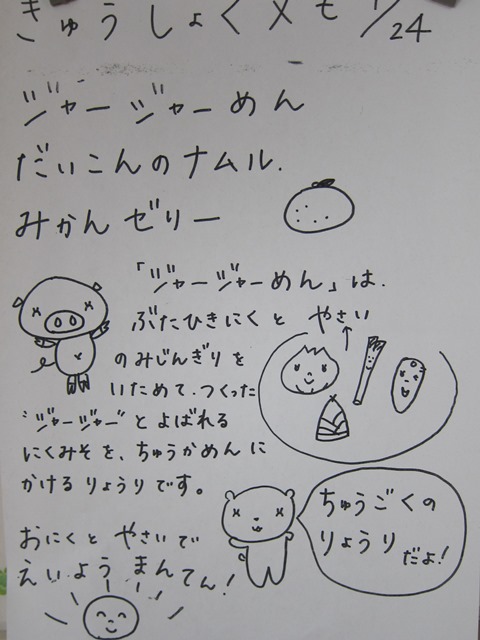 きゅうしょくメモ 1/24
ジャージャーめん
だいこんのナムル.
みかんゼリー
「ジャージャーめん」は、
ぶたひきにくと やさい
のみじんぎりを
いためて、つくった
"ジャージャー"とよばれる
にくみそを、ちゅうかめんに
かけるりょうりです。
ちゅうごくの
りょうり だよ!
おにくと やさいで
えいようまんてん!